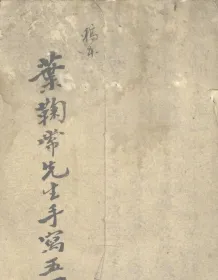 稿本
葉鞠常先生手寫五